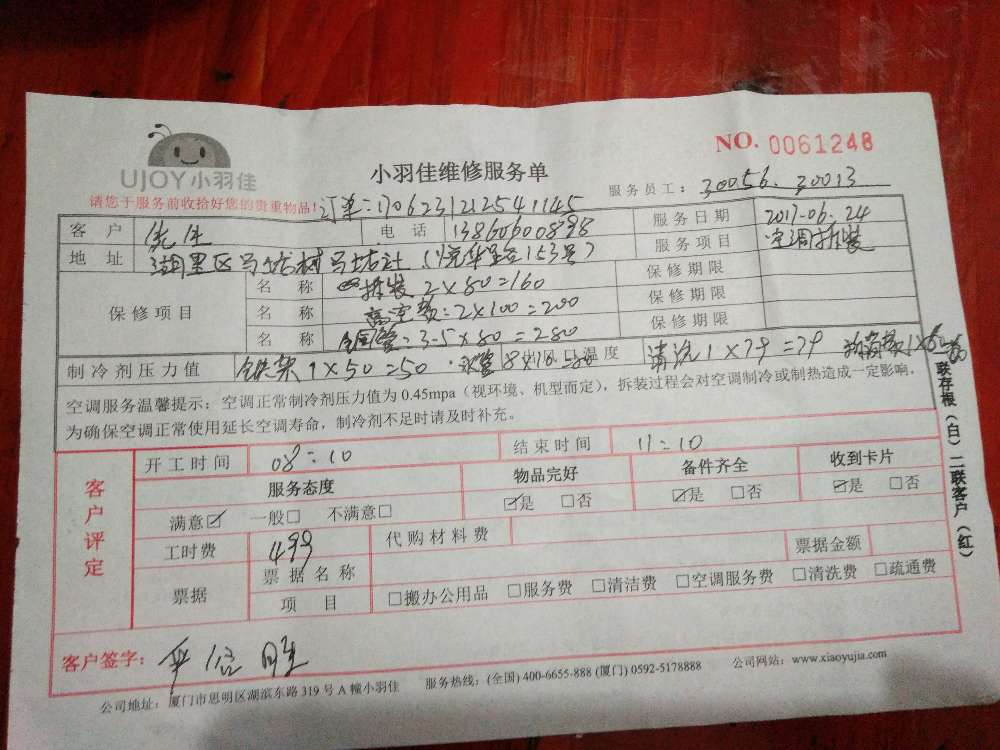 UJOY小羽佳
小羽佳维修服务单
NO. 0061248
请您于服务前收拾好您的贵重物品!
订单:1706231212541145
服务员工: 30056. 30013
客户 先生 电话 13860600898 服务日期 2017-06.24
地址 湖里区马垅村马垅社 153号) 服务项目 空调拆装
保修项目 名称 拆装 2×80=160 保修期限
名称 高空费:2×100=200 保修期限
名称 铜管:3.5×80=280 保修期限
制冷剂压力值 铁架 1×50=50 出风口温度 清洗1×79=79
空调服务温馨提示:空调正常制冷剂压力值为 0.45mpa(视环境、机型而定),拆装过程会对空调制冷或制热造成一定影响,
为确保空调正常使用延长空调寿命,制冷剂不足时请及时补充。
客户评定
开工时间 08:10 结束时间 11:10
服务态度 物品完好 备件齐全 收到卡片
满意☑ 一般□ 不满意□ ☑是 □否 ☑是 □否 ☑是 □否
工时费 499 代购材料费
票据 票据名称 票据金额
项目 □搬办公用品 □服务费 □清洁费 □空调服务费 □清洗费 □疏通费
客户签字:
公司地址:厦门市思明区湖滨东路 319 号 A 幢小羽佳 服务热线:(全国) 400-6655-888 (厦门) 0592-5178888 公司网站:www.xiaoyujia.com
联存根(白)二联客户(红)